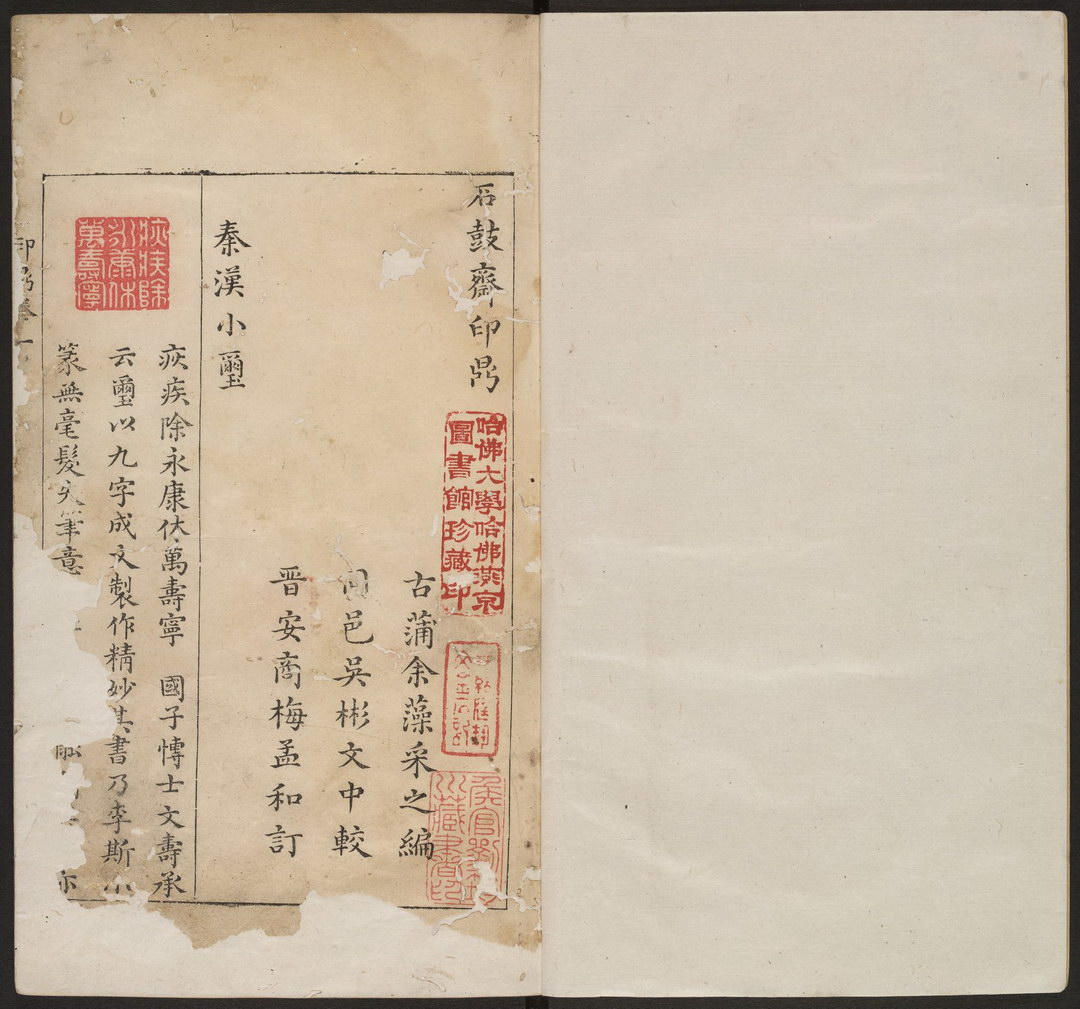 石鼓齋印鼎
哈佛大學哈佛燕京
圖書館珍藏印
古蒲余藻采之編
同邑吳彬文中較
晋安商梅孟和訂
藏書印
秦漢小璽
疢疾除
永康休
萬壽寧
疢疾除永康休萬壽寧 國子愽士文壽承
云璽以九字成文製作精妙其書乃李斯小
篆無毫髮失筆意
亦
印鼎卷一